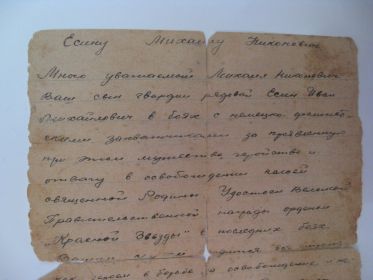 Есину Михаилу Никоновичу
Много уважаемой Михаил Никонович
Ваш сын гвардии рядовой Есин Иван
Михайлович в боях с немецко фашист-
скими захватчиками за проявленную
при этом мужество геройство и
отвагу в освобождении нашей
священной Родины Удостоен Великой
Правительственной награды орденой
"Красной Звезды" в последних боях
Вашим сын
как героем в борьбе за освобождение и не